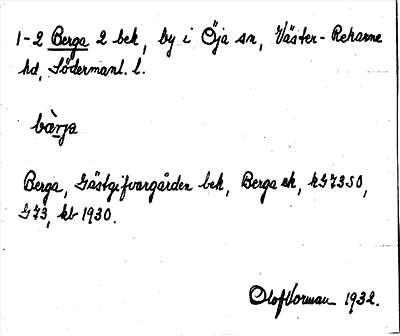 1-2 Berga 2 bek, by i Öja sn, Väster-Rekarne
hd, Södermanl. l.
bàrja
Berga, Gästgifvargården bek, Berga ek, kG7350,
G73, kb 1930.
Olof Vorman 1932.